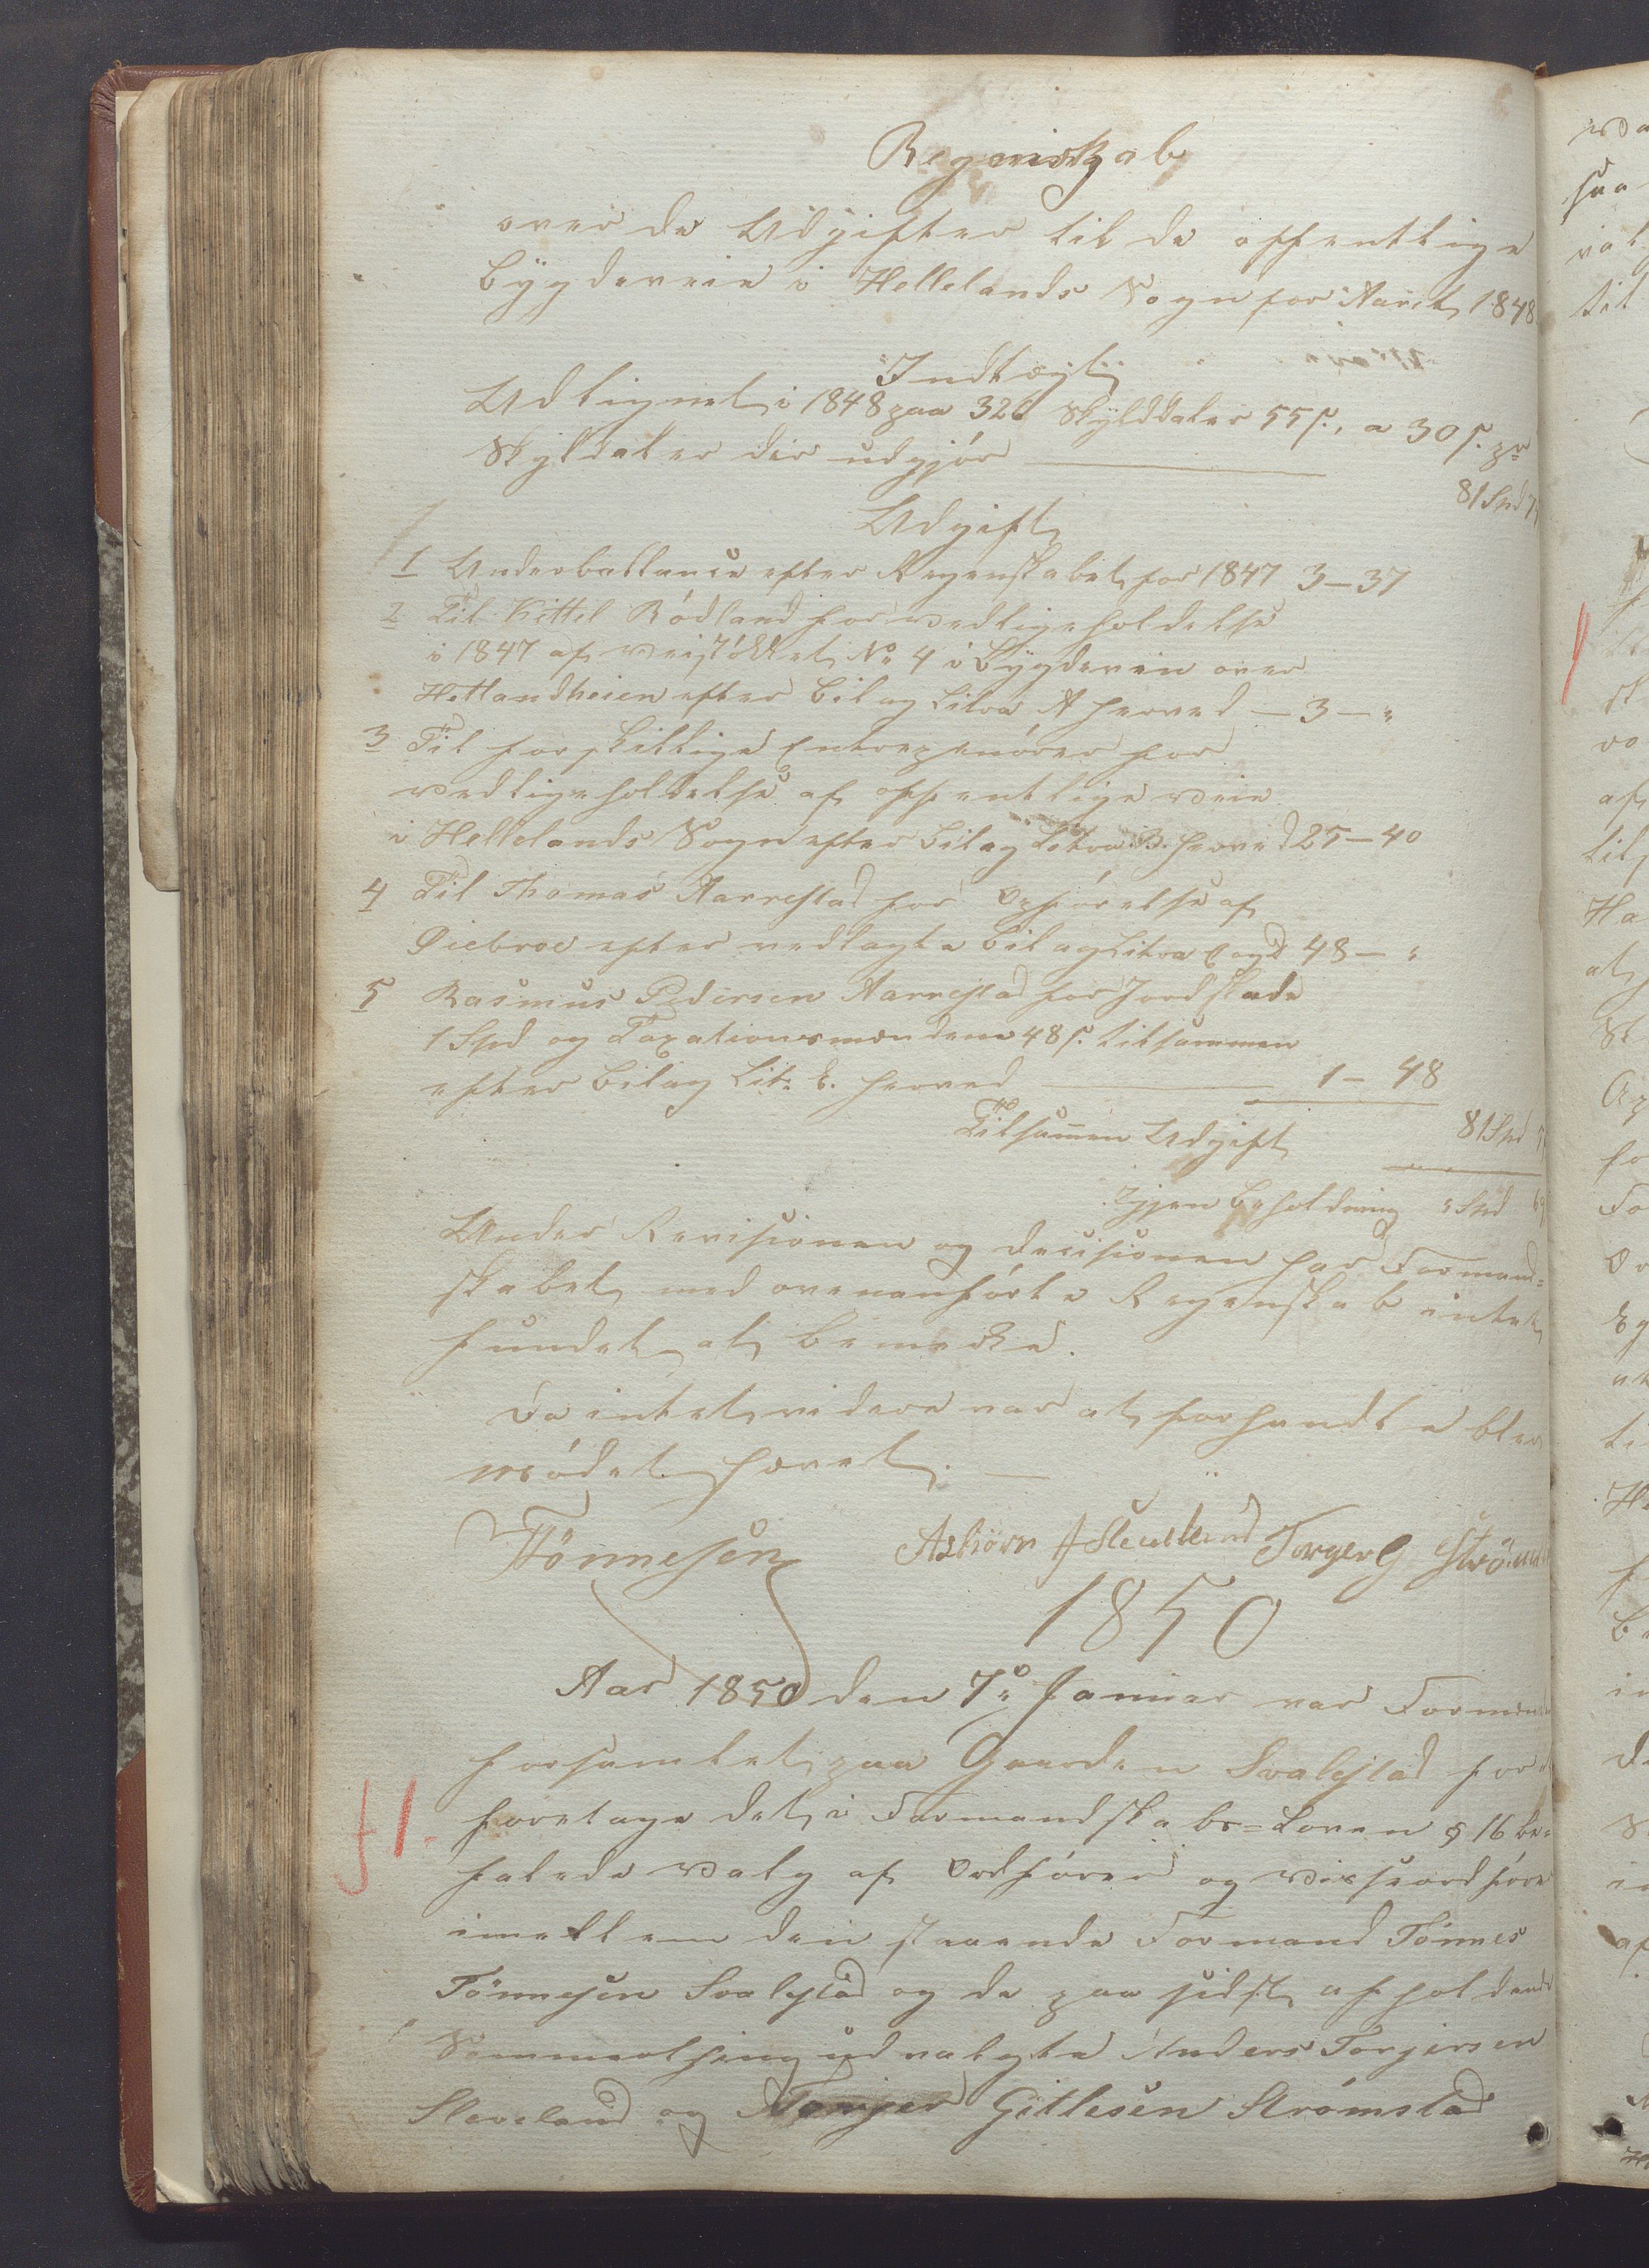 Regnskab
over de Udgifter til de offentlige
Bygdeveie i Hellelands Sogn for Aaret 1848
Indtægt
Udlignet i 1848 paa 326 Skylddaler 55 s., a 30 s. pr
Skyldaler der udgjör
81 Spd
Udgift
1 Underballance efter Regenskabet for 1847 3-37
2 Til Kittel Rödland for vedligeholdelse
i 1847 af veistökket No 4 i Bygdeveien over
Hetlandheien efter bilag Litra A herved - 3 - "
3 Til forskillige Entrepenörer for
vedligeholdelse af offentlige veie
i Hellelands Sogn efter bilag Litra B. herved 25-40
4 Til Thomas Aarrestad for Opförelse af
Öiebroe efter vedlagte bilag Litra C og D 48 - "
5 Rasmus Pedersen Aarrestad for Jordskade
1 Spd og Taxationsmændene 48 s. tilsammen
efter bilag Lit: E. herved 1 - 48
Tilsamen Udgift 81 Spd
Igjen beholdning " Spd
Under Revisionen og decisionen har Formand=
skabet med ovenanförte Regenskab intet
fundet at bemerke.
Da intet videre var at forhandle blev
mödet hævet.
TTönnesen Asbiörn A Sleveland Torger G Ströms
1850
Aar 1850 den 7de Januar var Formæn
forsamlet paa Gaarden Svalestad for
foretage det i Formandskabs=Loven § 16 be=
falede valg af Ordförer og viseordförer
imellem den staaende Formand Tönnes
Tönnesen Svalestad og de paa sidst afholdende
Sommerthing udvalgte Anders Torjersen
Sleveland og Torger Gitlesen Strömstad